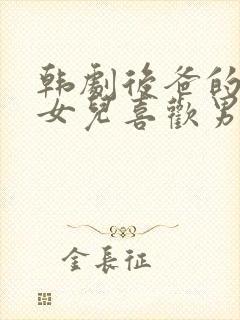 韩劇後爸的
女兒喜歡男
金長征